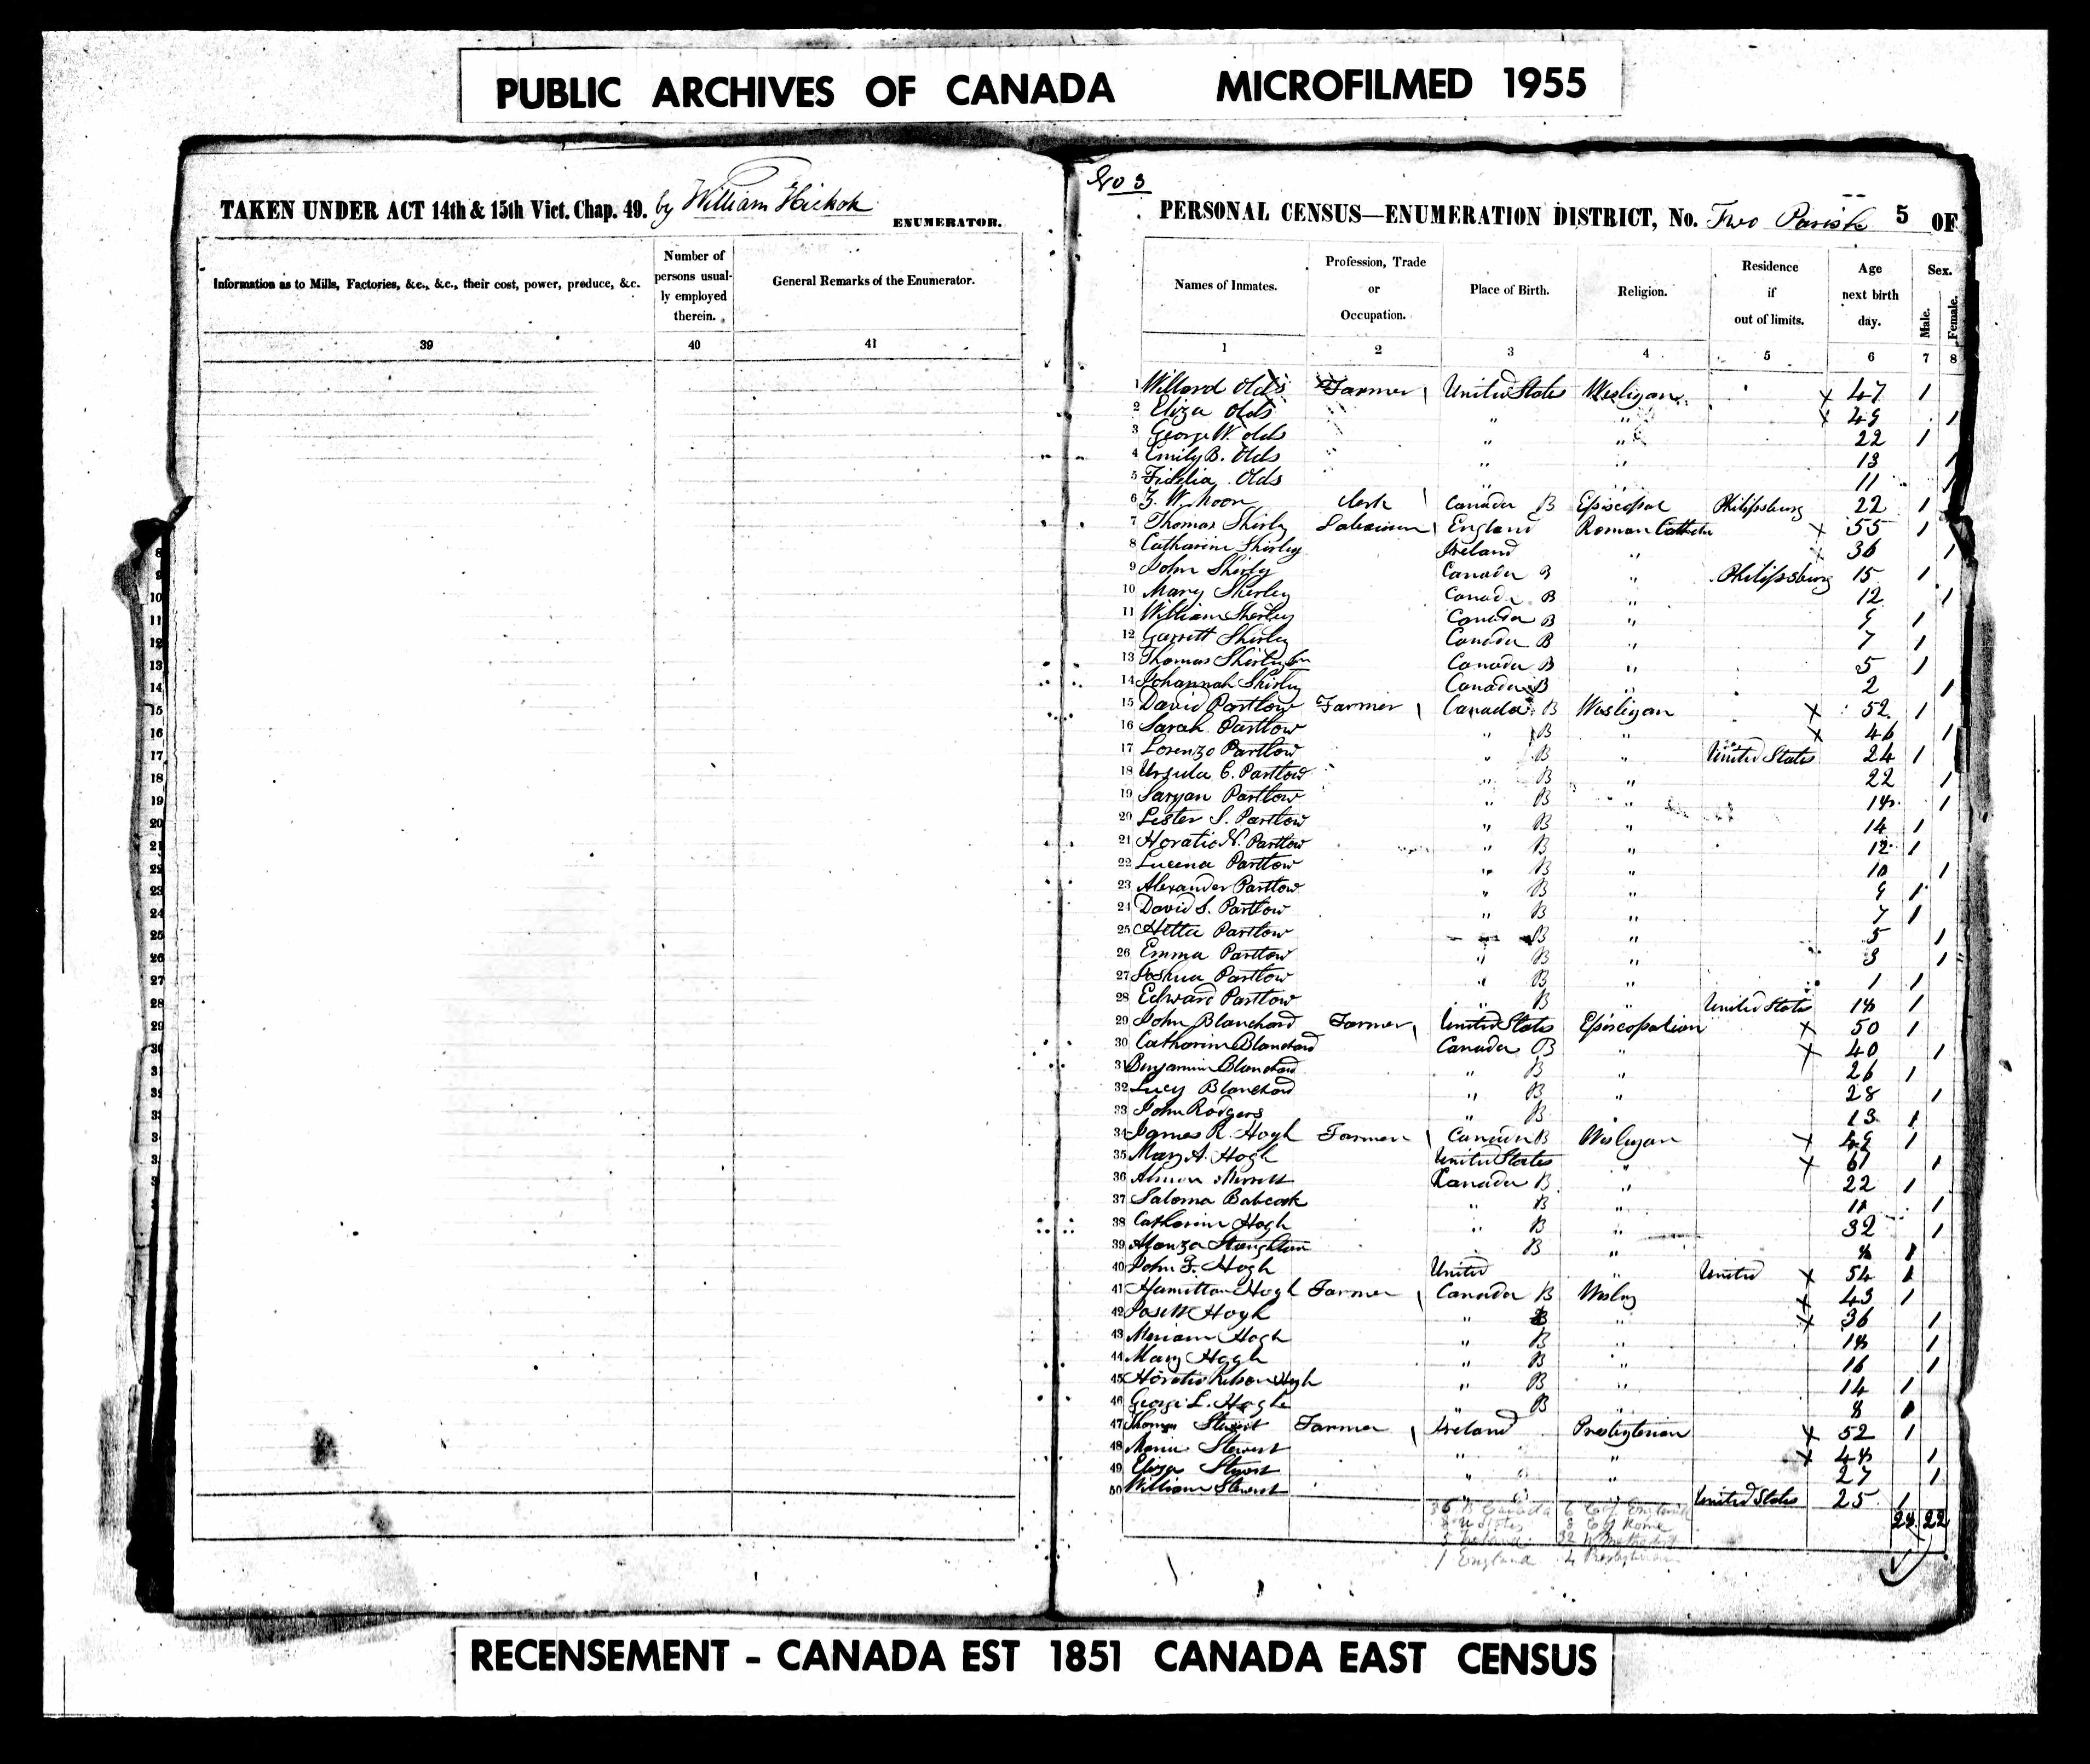 PUBLIC ARCHIVES OF CANADA MICROFILMED 1955
TAKEN UNDER ACT 14th & 15th Vict. Chap. 49. by William Hickok ENUMERATOR.
Information as to Mills, Factories, &c., &c., their cost, power, produce, &c.
Number of persons usually employed therein.
General Remarks of the Enumerator.
39 40 41
No 3
PERSONAL CENSUS—ENUMERATION DISTRICT, No. Two Parish 5 OF
Names of Inmates. Profession, Trade or Occupation. Place of Birth. Religion. Residence if out of limits. Age next birth day. Sex. Male. Female.
1 2 3 4 5 6 7 8
1 Willard Olds Farmer United States Wesligan x 47 1
2 Eliza Olds " " x 49 1
3 George W. Olds " " 22 1
4 Emily B. Olds " " 13 1
5 Fidelia Olds " " 11 1
6 Clerk Canada B Episcopal Philipsburg 22 1
7 Thomas Shirly England Roman x 55 1
8 Catharine Shirley Ireland " x 36 1
9 John Shirly Canada B " Philipsburg 15 1
10 Mary Sherley Canada B " 12 1
11 William Sherley Canada B " 9 1
12 Garritt Shirley Canada B " 7 1
13 Thomas Shirley Canada B " 5 1
14 Johannah Shirley Canada B " 2 1
15 David Partlow Farmer Canada B Wesligan x 52 1
16 Sarah Partlow " B " x 46 1
17 Lorenzo Partlow " B " United States 24 1
18 Ursula C. Partlow " B " 22 1
19 Saryan Partlow " B " 18 1
20 Lester S. Partlow " B " 14 1
21 Horatio N. Partlow " B " 12 1
22 Lucina Partlow " B " 10 1
23 Alexander Partlow " B " 9 1
24 David S. Partlow " B " 7 1
25 Hetta Partlow " B " 5 1
26 Emma Partlow " B " 3 1
27 Joshua Partlow " B " 1 1
28 Edward Partlow " B " United States 18 1
29 John Blanchard Farmer United States Episcopalian x 50 1
30 Catharine Blanchard Canada B " x 40 1
31 Benjamin Blanchard " B " 26 1
32 Lucy Blanchard " B " 28 1
33 John Rodgers " B " 13 1
34 James R. Hogh Farmer Canada B Wesligan x 49 1
35 Mary A. Hogh United States " x 61 1
36 Canada B " 22 1
37 Saloma Babcock " B " 1
38 Catharine Hogh " B " 32 1
39 Alonzo Stoughton B " 8 1
40 John F. Hogh United " United x 54 1
41 Hamilton Hogh Farmer Canada B x 43 1
42 Hogh " B " x 36 1
43 Meriam Hogh " B " 18 1
44 Mary Hogh " B " 16 1
45 Horatio Nelson Hogh " B " 14 1
46 George L. Hogh " B " 8 1
47 Thomas Stewert Farmer Ireland Presbyterian x 52 1
48 Maria Stewert " " x 48 1
49 Eliza Stewert " " 27 1
50 William Stewert " " United States 25 1
28 22
36 B Canada 6 C of England
8 U States 8 C of Rome
5 Ireland 32 W Methodist
1 England 4 Presbyterian
8
9
10
11
12
13
14
15
16
17
18
19
20
21
22
23
24
25
26
27
28
29
30
RECENSEMENT - CANADA EST 1851 CANADA EAST CENSUS